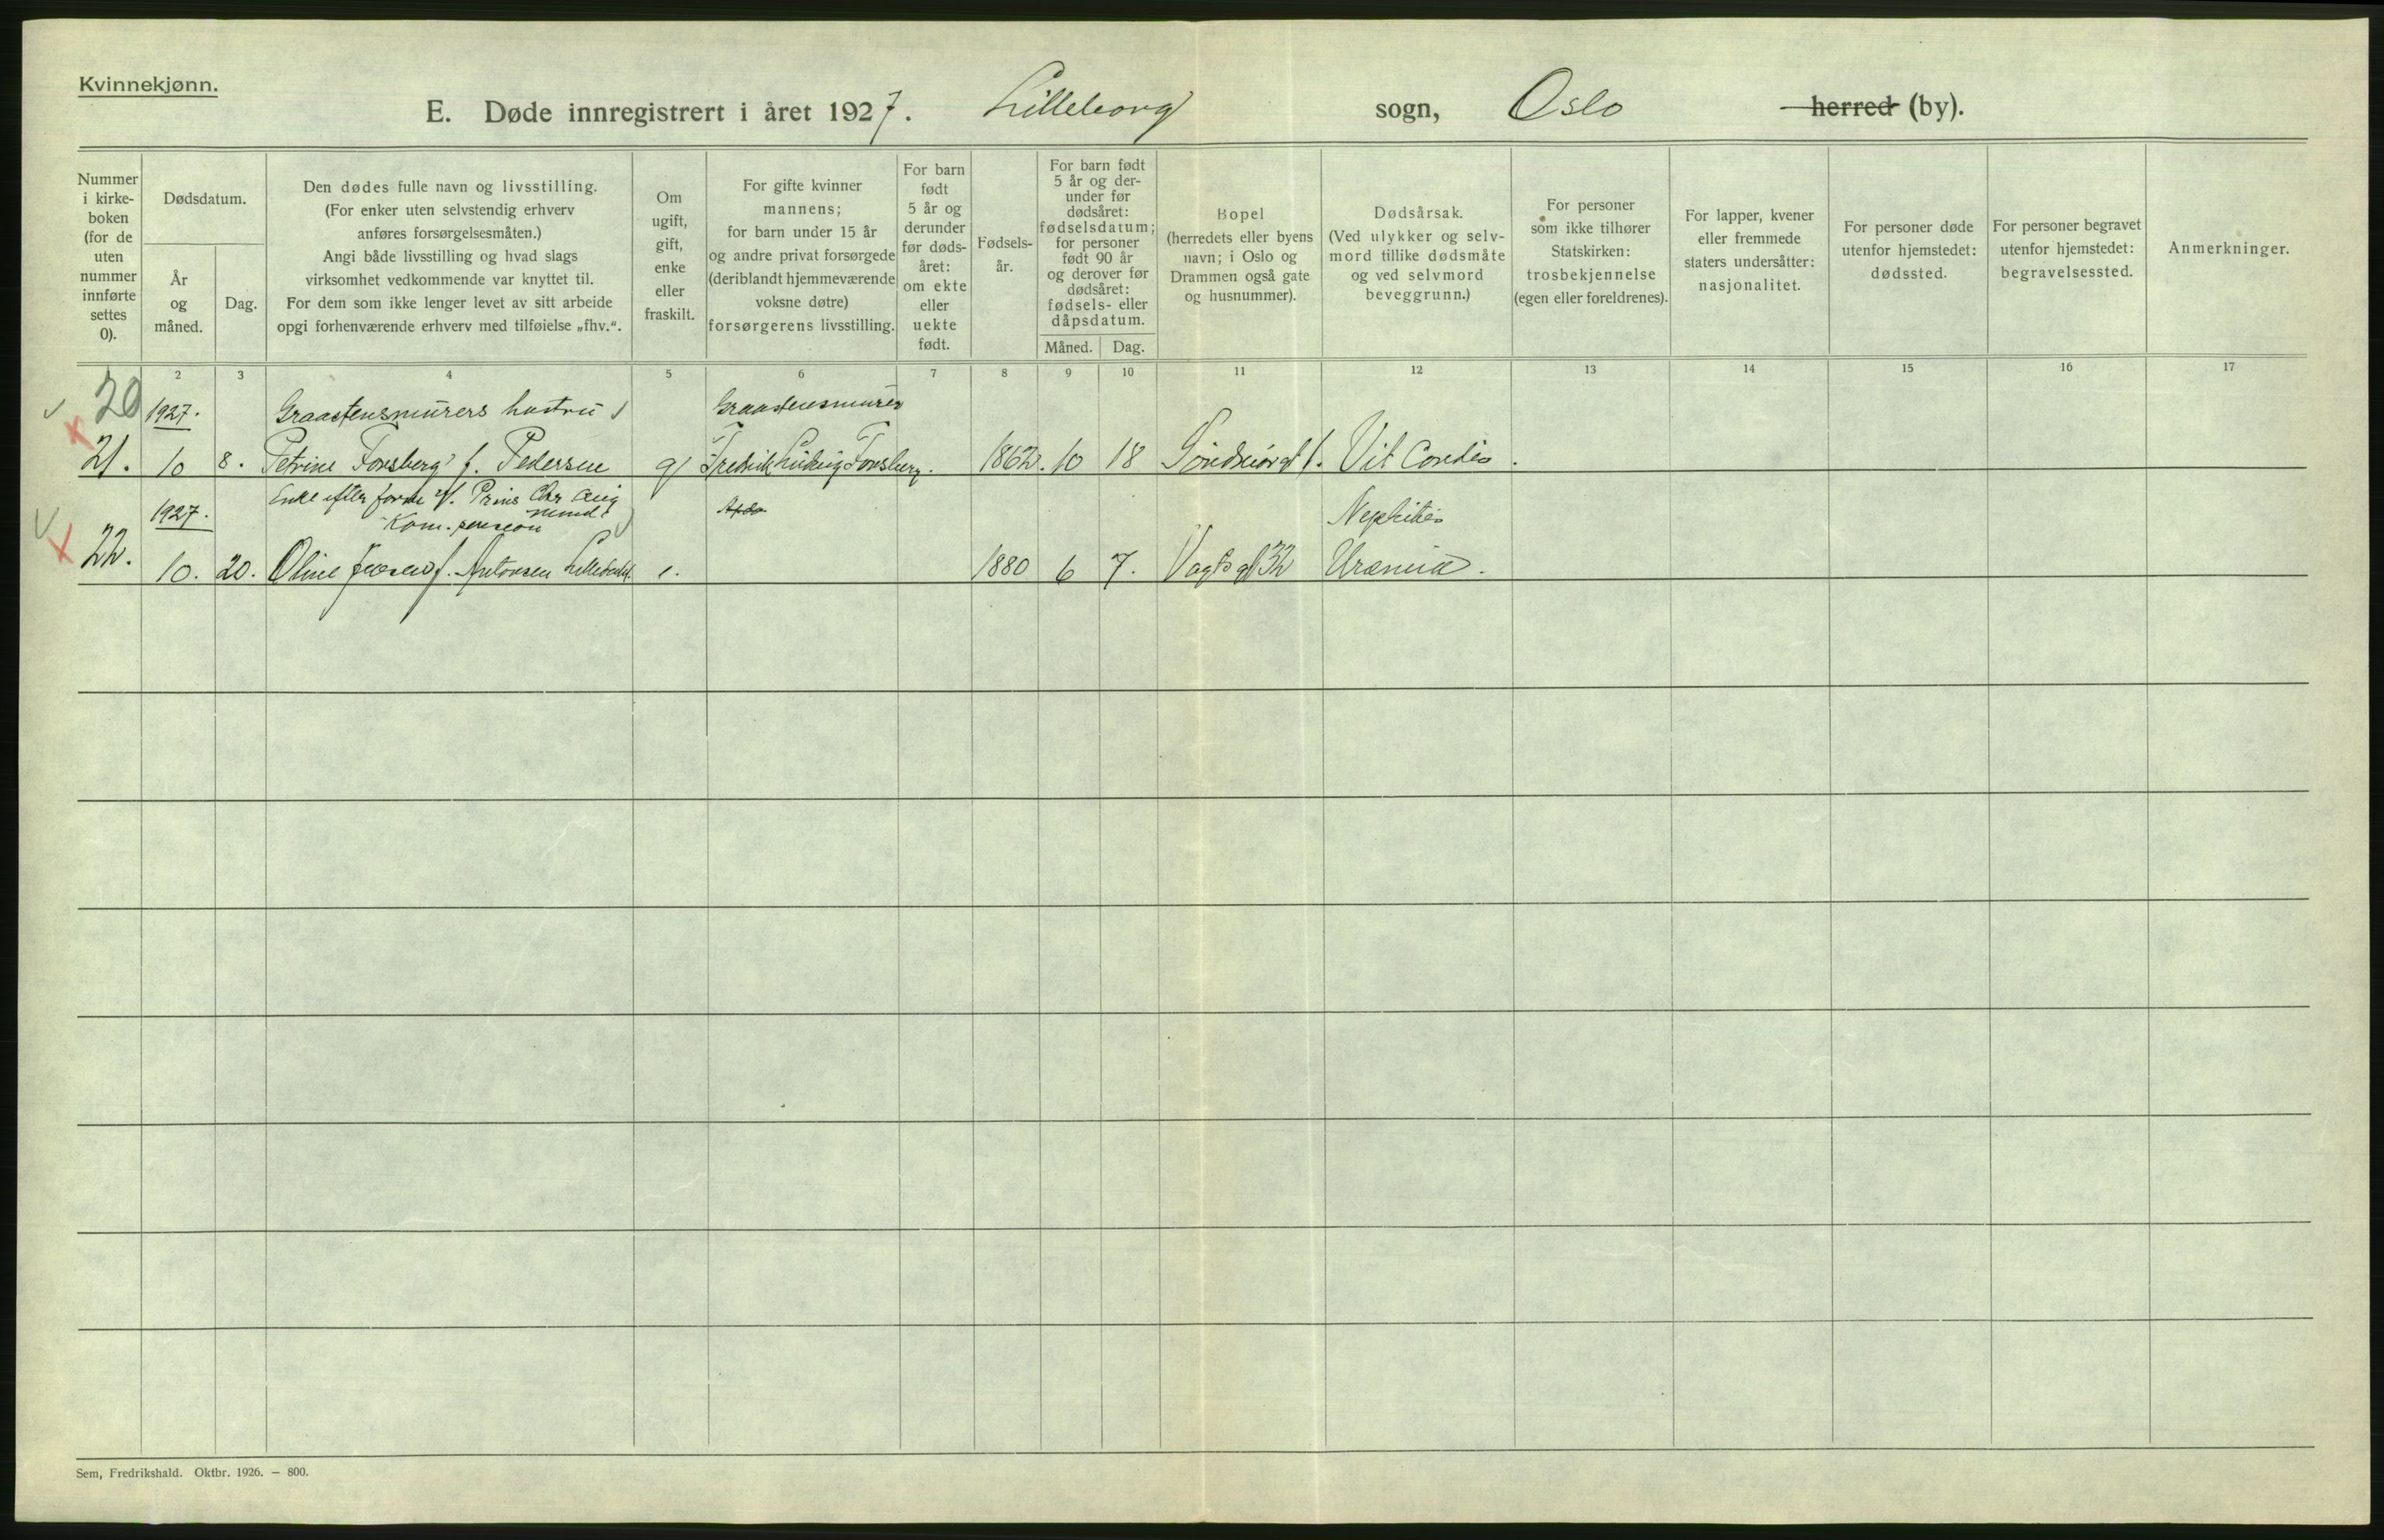 Kvinnekjønn.
E. Døde innregistrert i året 1927. Lilleborg sogn, Oslo herred (by).
Nummer i kirke- boken (for de uten nummer innførte settes 0).
Dødsdatum.
År og måned.
Dag.
Den dødes fulle navn og livsstilling.
(For enker uten selvstendig erhverv
anføres forsørgelsesmåten.)
Angi både livsstilling og hvad slags
virksomhet vedkommende var knyttet til.
For dem som ikke lenger levet av sitt arbeide
opgi forhenværende erhverv med tilføielse „fhv.“.
Om
ugift,
gift,
enke
eller
fraskilt.
For gifte kvinner
mannens;
for barn under 15 år
og andre privat forsørgede
(deriblandt hjemmeværende
voksne døtre)
forsørgerens livsstilling.
For barn
født
5 år og
derunder
før døds-
året:
om ekte
eller
uekte
født.
Fødsels-
år.
For barn født
5 år og der-
under før
dødsåret:
fødselsdatum;
for personer
født 90 år
og derover før
dødsåret:
fødsels- eller
dåpsdatum.
Måned. Dag.
Bopel
(herredets eller byens
navn; i Oslo og
Drammen også gate
og husnummer).
Dødsårsak.
(Ved ulykker og selv-
mord tillike dødsmåte
og ved selvmord
beveggrunn.)
For personer
som ikke tilhører
Statskirken:
trosbekjennelse
(egen eller foreldrenes).
For lapper, kvener
eller fremmede
staters undersåtter:
nasjonalitet.
For personer døde
utenfor hjemstedet:
dødssted.
For personer begravet
utenfor hjemstedet:
begravelsessted.
Anmerkninger.
2 3 4 5 6 7 8 9 10 11 12 13 14 15 16 17
20 1927. Graastensmurers hustru Graastensmurer
21. 10 8. Petrine Forsberg f. Pedersen g Fredrik Ludvig Forsberg. 1862. 10 18 1. Vit Cordis.
Enke efter form. Prins Chr Aug
1927. mind. Nephitis
Kom. pension
22. 10. 20. Oline f. Antonsen e. 1880 6 7. Vogts gt 32 Uræmia.
Sem, Fredrikshald. Oktbr. 1926. — 800.